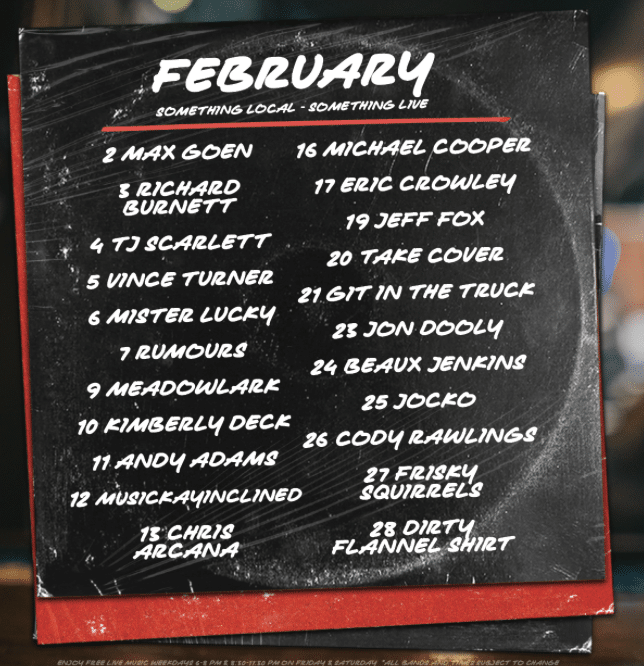 FEBRUARY
SOMETHING LOCAL - SOMETHING LIVE
2 MAX GOEN
3 RICHARD
BURNETT
4 TJ SCARLETT
5 VINCE TURNER
6 MISTER LUCKY
7 RUMOURS
9 MEADOWLARK
10 KIMBERLY DECK
11 ANDY ADAMS
12 MUSICKAYINCLINED
13 CHRIS
ARCANA
16 MICHAEL COOPER
17 ERIC CROWLEY
19 JEFF FOX
20 TAKE COVER
21 GIT IN THE TRUCK
23 JON DOOLY
24 BEAUX JENKINS
25 JOCKO
26 CODY RAWLINGS
27 FRISKY
SQUIRRELS
28 DIRTY
FLANNEL SHIRT
ENJOY FREE LIVE MUSIC WEEKDAYS 6-9 PM & 8:30-11:30 PM ON FRIDAY & SATURDAY *ALL BANDS AND TIMES SUBJECT TO CHANGE